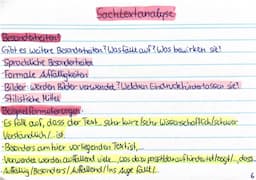 Sachtextanalyse
Besonderheiten!
Gibt es weitere Besonderheiten? Was fällt auf? Was bewirken sie?
Sprachliche Besonderheiten
Formale Auffälligkeiten
Bilder werden Bilder verwendet? Welchen Eindruck hinterlassen sie?
Stilistische Mittel
Beispielformulierungen
Es fällt auf, dass der Text... sehr kurz/sehr Wissenschaftlich/schwer
Verständlich/... ist.
Besonders am hier vorliegenden Text ist,...
Verwendet werden auffallend viele..., was
Auffällig/Besonders/Auffallend/Ins Auge fällt...
6